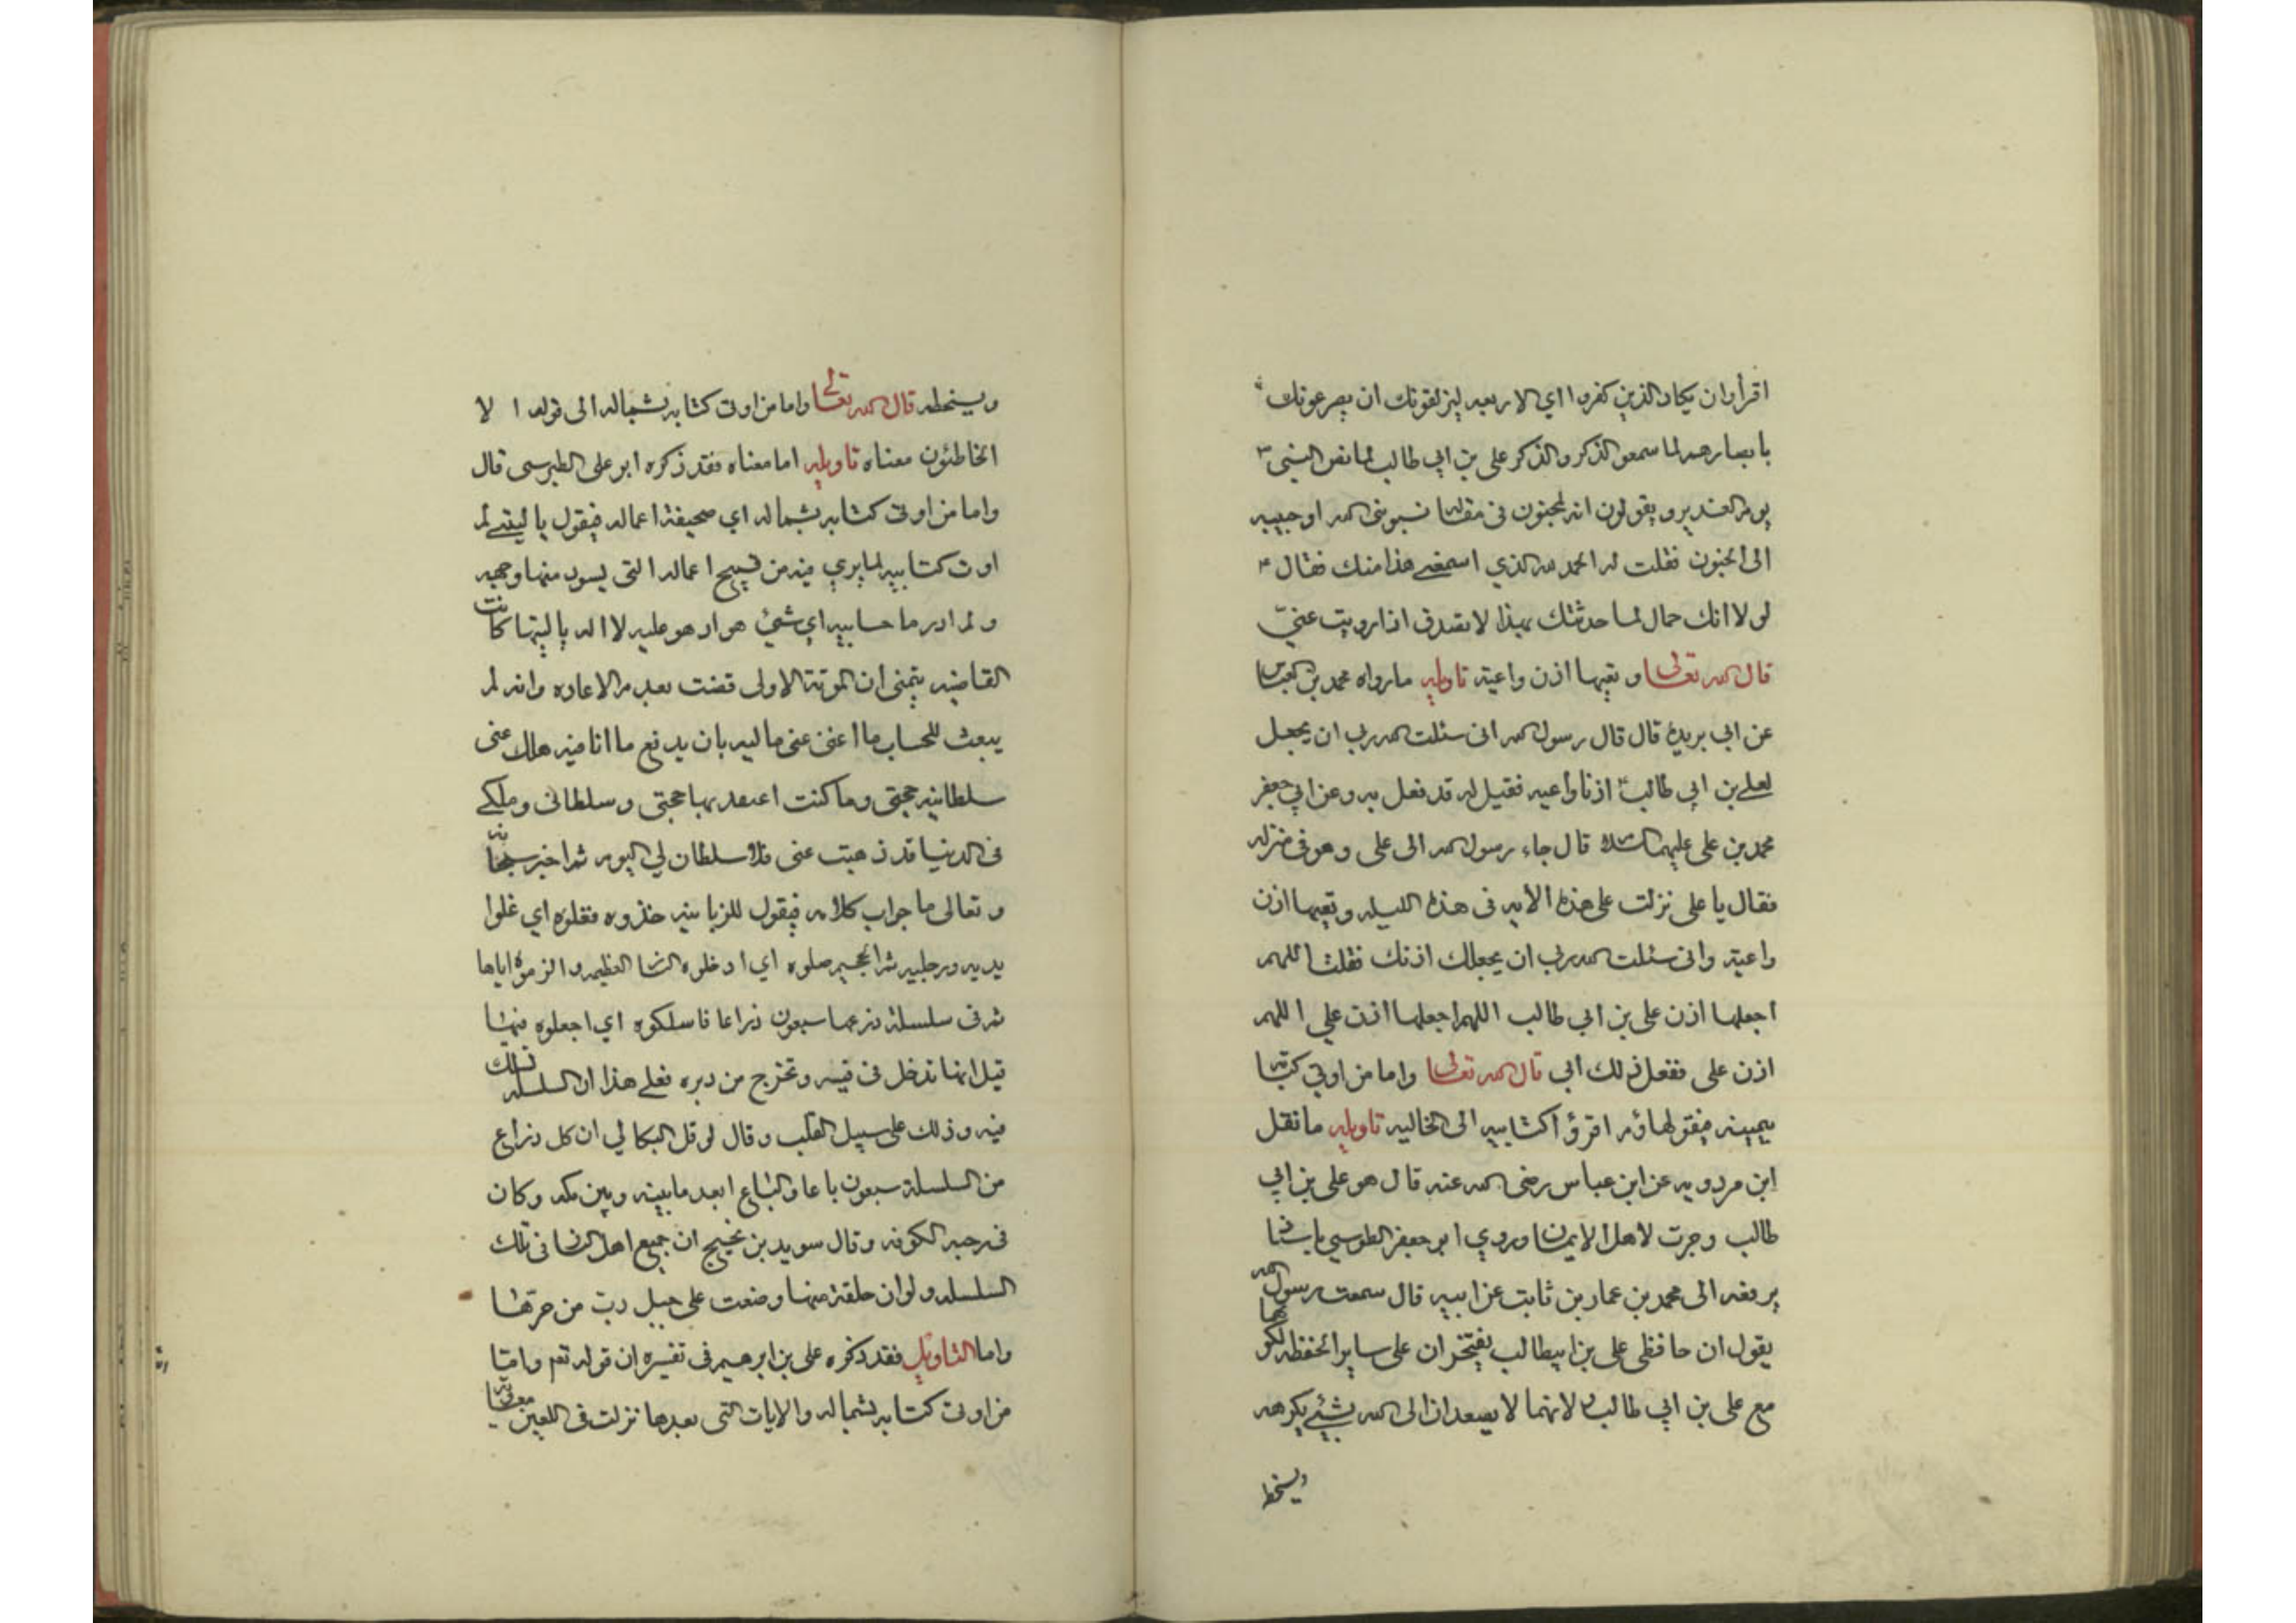 اقرأ وان يكاد الذين كفروا اي الاربعه ليزلقونك ان يصرعونك
بابصارهم لما سمعو الذكر والذكر علي بن ابي طالب لما نص النبي
يوم الغدير ويقولون انه لمجنون في مقاله نسبوني الله او حبيبه
الى الجنون فقلت له الحمد لله الذي اسمعني هذا منك فقال
لولا انك حمال لما حدثتك بهذا لا تصدق اذا رويت عني
قال الله تعالى وتعيها اذن واعية تاويله ما رواه محمد بن العباس
عن ابي بريدة قال قال رسول الله اني سئلت الله ربي ان يجعل
لعلي بن ابي طالب اذنا واعيه فقيل له قد فعل به وعن ابي جعفر
محمد بن علي عليهما السلام قال جاء رسول الله الى علي وهو في منزله
فقال يا علي نزلت علي هذه الايه في هذه الليله وتعيها اذن
واعية واني سئلت الله ربي ان يجعلك اذنك فقلت اللهم
اجعلها اذن علي بن ابي طالب اللهم اجعلها اذن علي اللهم
اذن علي ففعل ذلك ابي قال الله تعالى واما من اوتي كتابه
بيمينه فيقول هاؤم اقرؤا كتابيه الى الخاليه تاويله ما نقل
ابن مردويه عن ابن عباس رضى الله عنه قال هو علي بن ابي
طالب وجرت لاهل الايمان وروي ابو جعفر الطوسي باسناده
يرفعه الى محمد بن عمار بن ثابت عن ابيه قال سمعت رسول الله
يقول ان حافظي علي بن ابيطالب يفتخران على ساير الحفظه لكونهما
مع علي بن ابي طالب لانهما لا يصعدان الى الله بشيئ يكرهه
ويسخط
ويسخطه قال الله تعالى واما من اوتى كتابه بشماله الى قوله الا
الخاطئون معناه تاويله اما معناه فقد ذكره ابو على الطبرسى قال
واما من اوتى كتابه بشماله اي صحيفة اعماله فيقول يا ليتني لم
اوت كتابيه لما يري فيه من قبيح اعماله التى يسود منها وجهه
ولم ادر ما حسابيه اي شيئ هو اد هو عليه لا اله يا ليتها كانت
القاضيه يتمنى ان الموتة الاولى قضت بعدم الاعاده وانه لم
يبعث للحساب ما اغنى عنى ماليه بان يدفع ما انا فيه هلك عنى
سلطانيه حجتي وما كنت اعتقد بها حجتي وسلطانى وملكي
فى الدنيا قد ذهبت عنى فلا سلطان لي اليوم ثم اخبر سبحانه
وتعالى ما جواب كلامه فيقول للزبانيه خذوه فغلوه اي غلوا
يديه ورجليه ثم الجحيم صلوه اي ادخلوه النار العظيمه والزموه اياها
ثم فى سلسلة ذرعها سبعون ذراعا فاسلكوه اي اجعلوه فيها
قيل انها تدخل في فيه وتخرج من دبره فعلى هذا ان السلسله تسلك
فيه وذلك على سبيل القلب وقال نوفل البكالي ان كل ذراع
من السلسلة سبعون باعا والباع ابعد ما بينه وبين مكه وكان
فى رحبه الكوفه وقال سويد بن نجيح ان جميع اهل النار فى تلك
السلسله ولو ان حلقة منها وضعت على جبل ذاب من حرها
واما التاويل فقد ذكره على بن ابرهيم فى تفسيره ان قوله تعم واما
من اوتى كتابه بشماله والايات التى بعدها نزلت فى اللعين معويه